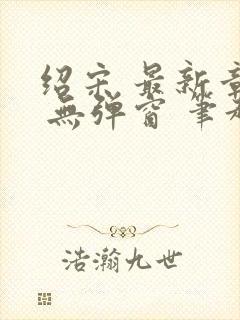 绍宋 最新章
無弹窗 笔
浩瀚九世